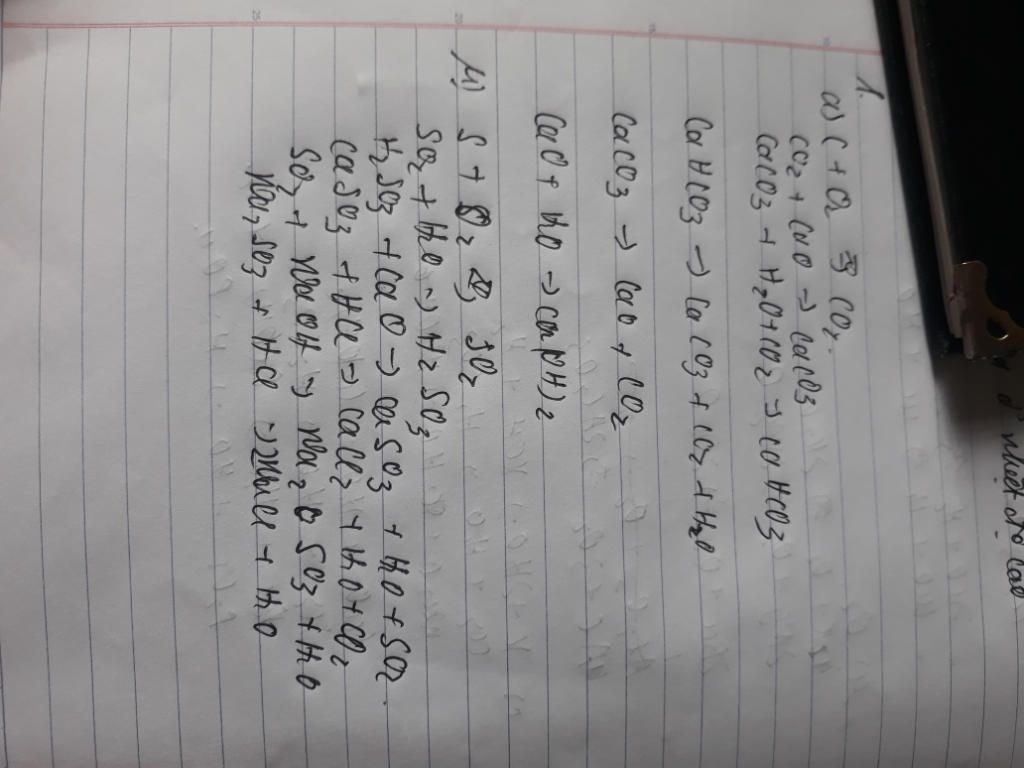 1.
a) C + O2 t°→ CO2.
CO2 + CaO → CaCO3
CaCO3 + H2O + CO2 → CaHCO3
CaHCO3 → CaCO3 + CO2 + H2O
CaCO3 → CaO + CO2
CaO + H2O → Ca(OH)2
S + O2 t°→ SO2
SO2 + H2O → H2SO3
H2SO3 + CaO → CaSO3 + H2O + SO2.
CaSO3 + HCl → CaCl2 + H2O + CO2
SO2 + NaOH → Na2SO3 + H2O
Na2SO3 + HCl → 2NaCl + H2O
nhiệt độ cao